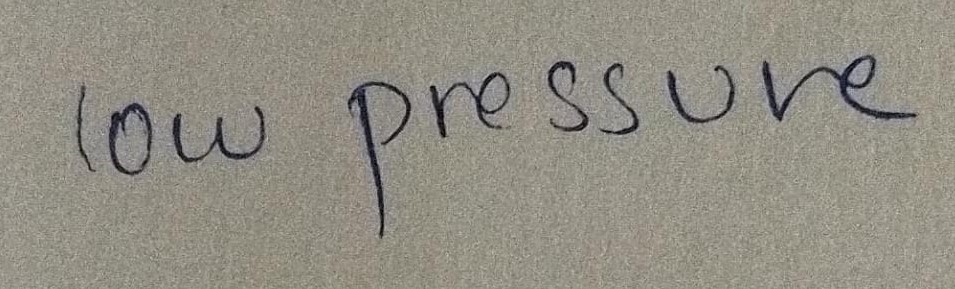 low pressure